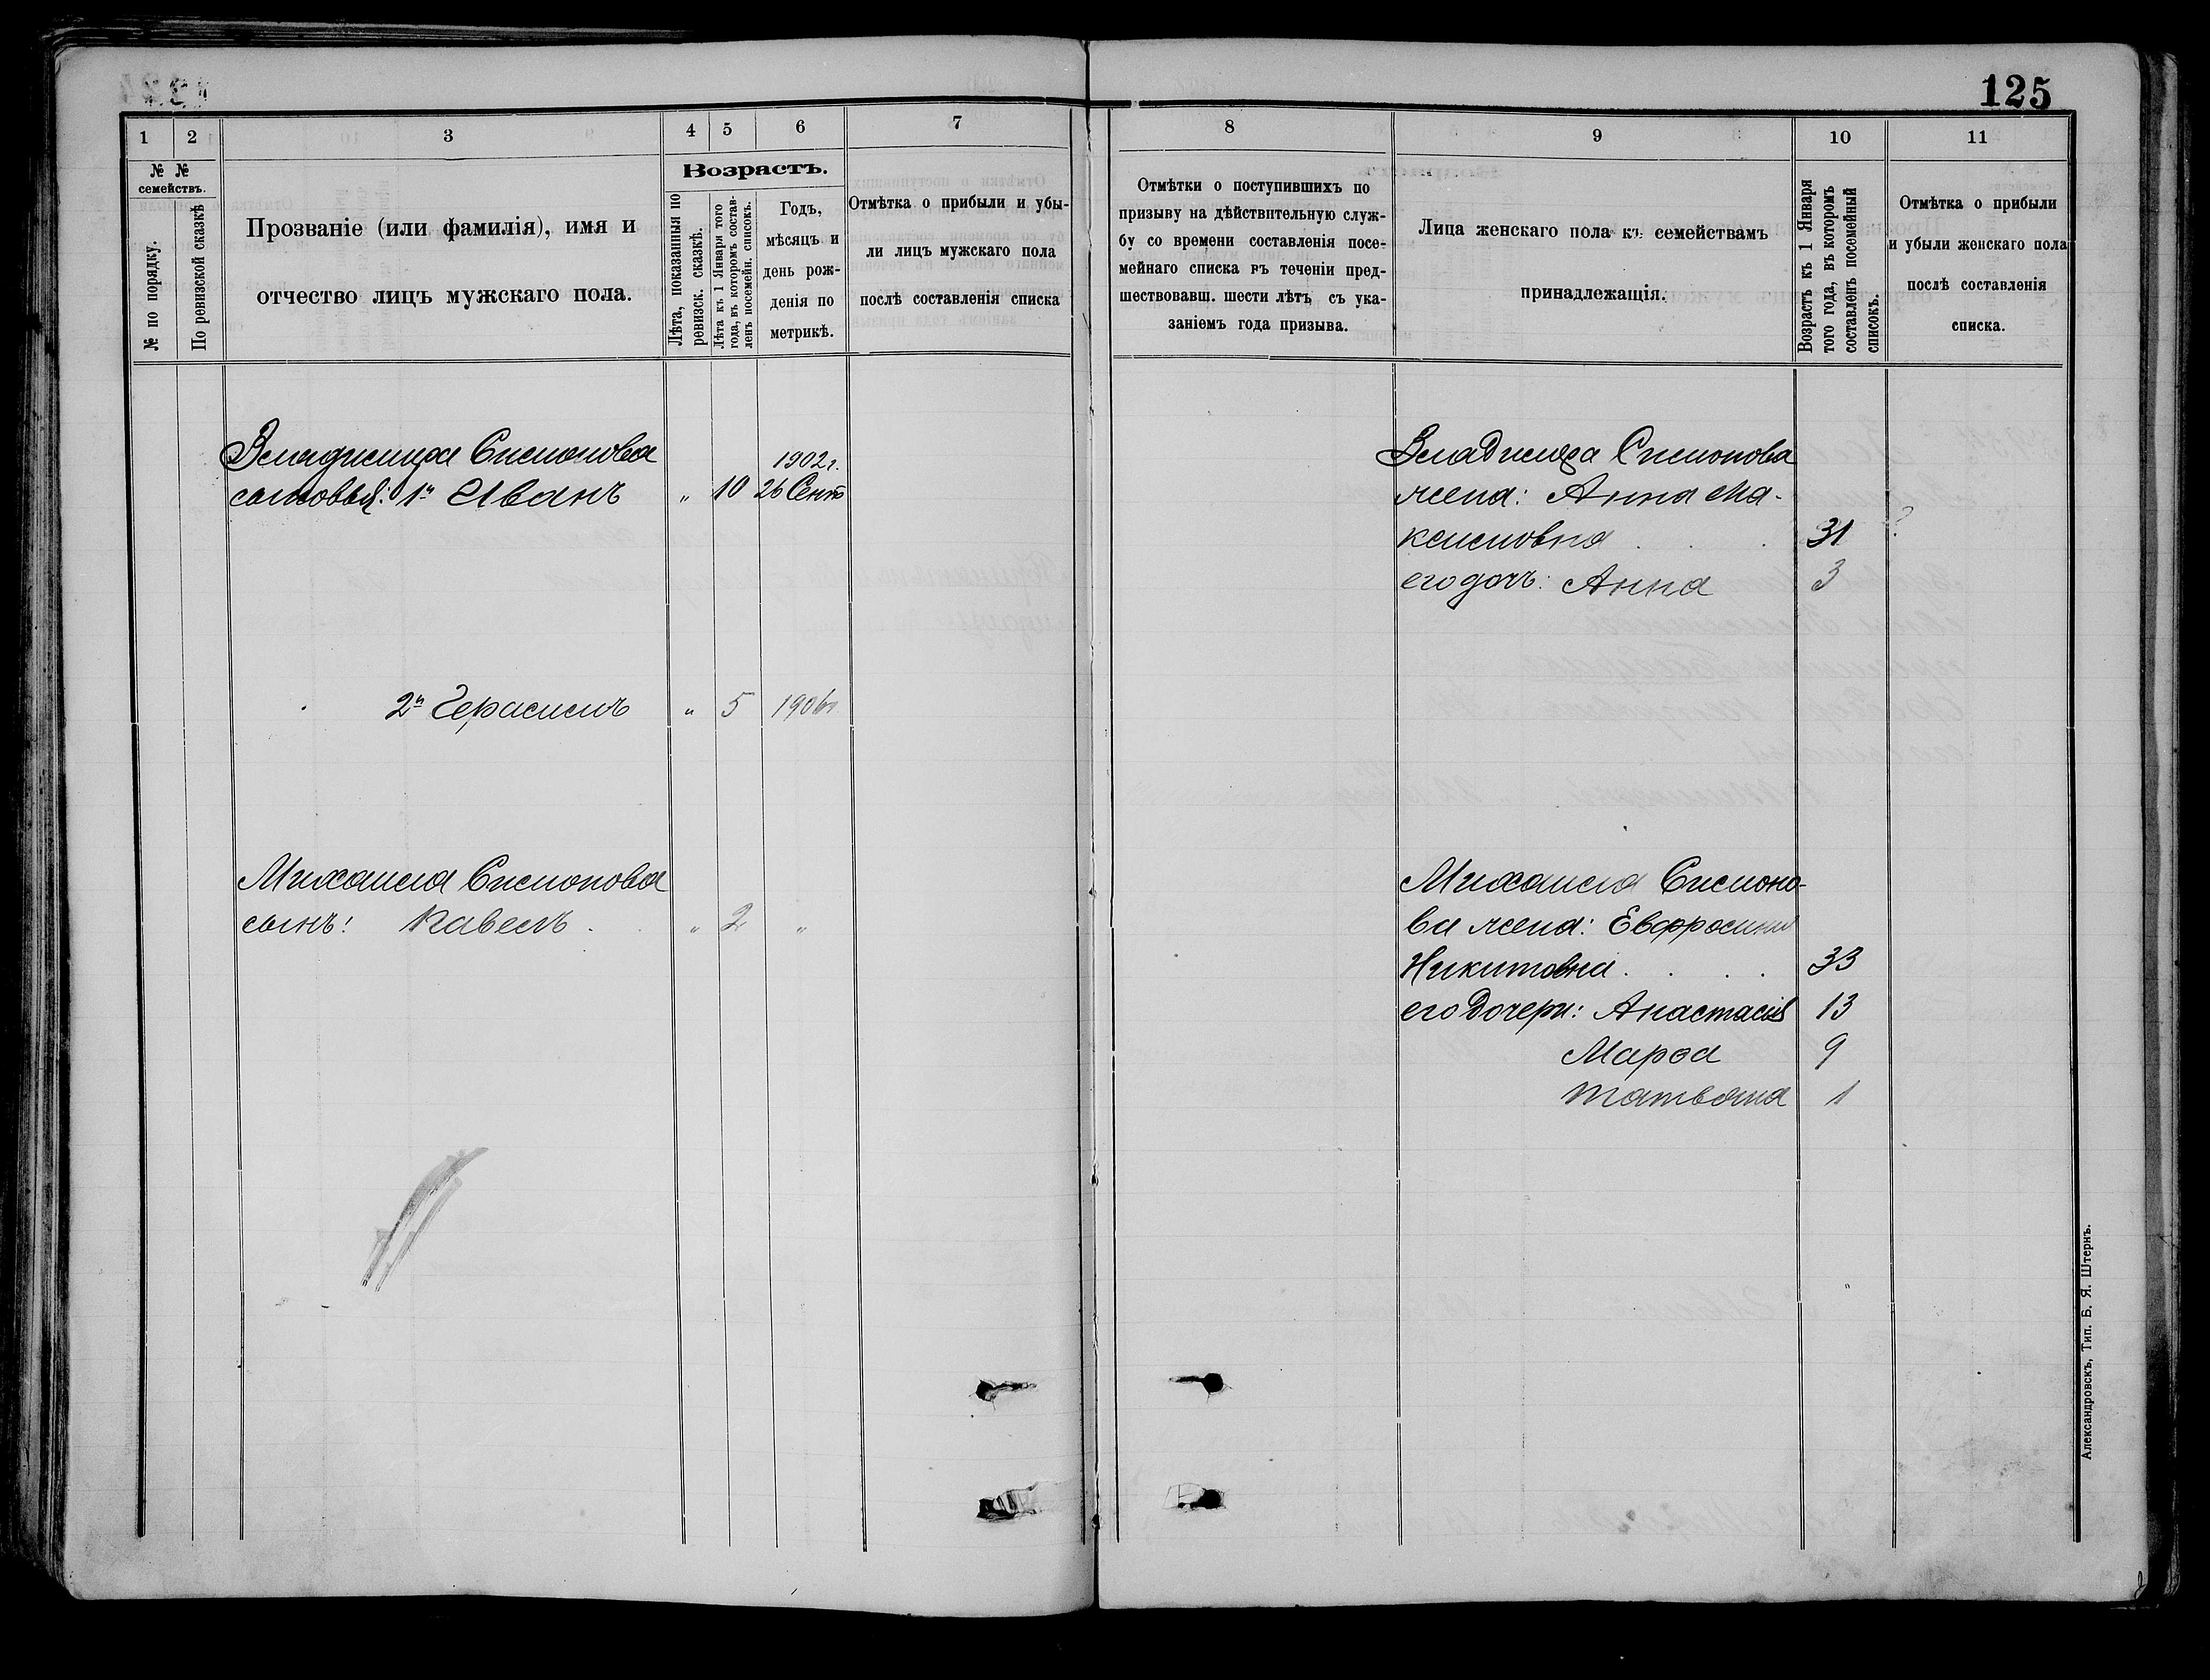 125
1 2 3 4 5 6 7
№ № семействъ.
№ по порядку.
По ревизской сказкѣ
Прозваніе (или фамилія), имя и
отчество лицъ мужскаго пола.
Возрастъ.
Лѣта, показанныя по
ревизск. сказкѣ.
Лѣта къ 1 Января того
года, въ которомъ состав-
ленъ посемейн. списокъ.
Годъ,
мѣсяцъ и
день рож-
денія по
метрикѣ.
Отмѣтка о прибыли и убы-
ли лицъ мужскаго пола
послѣ составленія списка
Владимира Симонова
1902 г.
сыновья: 1й Иванъ „ 10 26 Сент
2й Герасимъ „ 5 1906 г.
Михаила Симонова
сынъ: Павелъ „ 2 „
8 9 10 11
Отмѣтки о поступившихъ по
призыву на дѣйствительную служ-
бу со времени составленія посе-
мейнаго списка въ теченіи пред-
шествовавш. шести лѣтъ, съ ука-
заніемъ года призыва.
Лица женскаго пола къ семействамъ
принадлежащія.
Возрастъ къ 1 Января
того года, въ которомъ
составленъ посемейный
списокъ.
Отмѣтка о прибыли
и убыли женскаго пола
послѣ составленія
списка.
Владимира Симонова
жена: Анна Ма-
ксимовна 31 ?
его дочь: Анна 3
Михаила Симоно-
ва жена: Евфросинія
Никитовна 33
его дочери: Анастасія 13
Марѳа 9
Татьяна 1
Александровскъ, Тип. Б. Я. Штернъ.